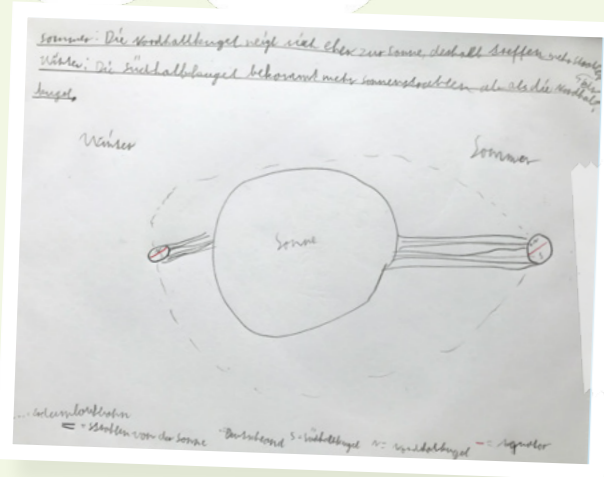 Sommer: Die Nordhalbkugel neigt sich eher zur Sonne deshalb treffen mehr
Winter: Die Südhalbkugel bekommt mehr sonnenstrahlen als die Nordhalb
kugel.
Winter
Sommer
Sonne
= Strahlen von der Sonne S = Südhalbkugel N = Nordhalbkugel - = Äquator